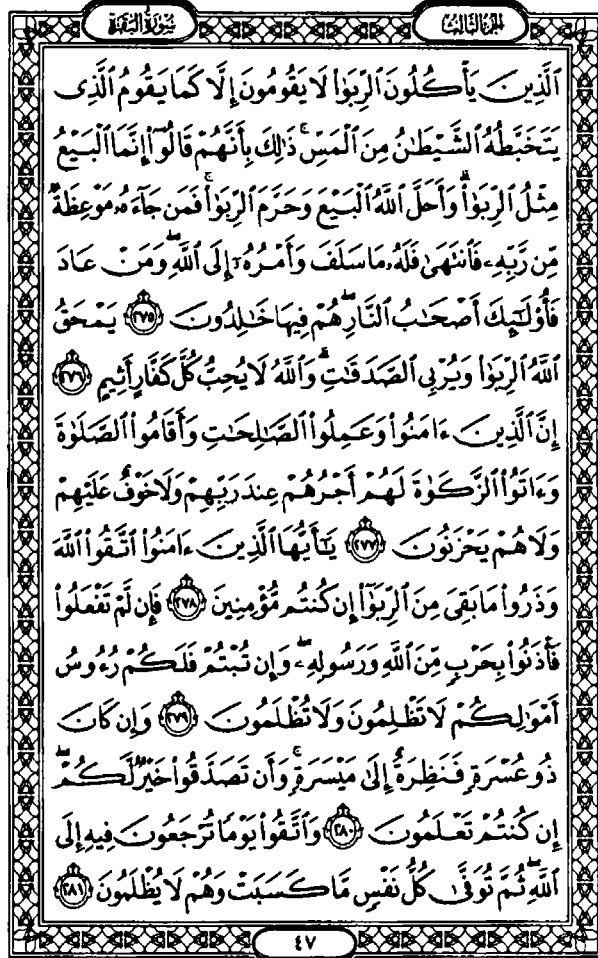 سُورَةُ الْبَقَرَةِ
الجزء الثالث
ٱلَّذِينَ يَأْكُلُونَ ٱلرِّبَوٰا۟ لَا يَقُومُونَ إِلَّا كَمَا يَقُومُ ٱلَّذِى
يَتَخَبَّطُهُ ٱلشَّيْطَٰنُ مِنَ ٱلْمَسِّ ۚ ذَٰلِكَ بِأَنَّهُمْ قَالُوٓا۟ إِنَّمَا ٱلْبَيْعُ
مِثْلُ ٱلرِّبَوٰا۟ ۗ وَأَحَلَّ ٱللَّهُ ٱلْبَيْعَ وَحَرَّمَ ٱلرِّبَوٰا۟ ۚ فَمَن جَآءَهُۥ مَوْعِظَةٌ
مِّن رَّبِّهِۦ فَٱنتَهَىٰ فَلَهُۥ مَا سَلَفَ وَأَمْرُهُۥٓ إِلَى ٱللَّهِ ۖ وَمَنْ عَادَ
فَأُو۟لَٰٓئِكَ أَصْحَٰبُ ٱلنَّارِ ۖ هُمْ فِيهَا خَٰلِدُونَ ﴿٢٧٥﴾ يَمْحَقُ
ٱللَّهُ ٱلرِّبَوٰا۟ وَيُرْبِى ٱلصَّدَقَٰتِ ۗ وَٱللَّهُ لَا يُحِبُّ كُلَّ كَفَّارٍ أَثِيمٍ ﴿٢٧٦﴾
إِنَّ ٱلَّذِينَ ءَامَنُوا۟ وَعَمِلُوا۟ ٱلصَّٰلِحَٰتِ وَأَقَامُوا۟ ٱلصَّلَوٰةَ
وَءَاتَوُا۟ ٱلزَّكَوٰةَ لَهُمْ أَجْرُهُمْ عِندَ رَبِّهِمْ وَلَا خَوْفٌ عَلَيْهِمْ
وَلَا هُمْ يَحْزَنُونَ ﴿٢٧٧﴾ يَٰٓأَيُّهَا ٱلَّذِينَ ءَامَنُوا۟ ٱتَّقُوا۟ ٱللَّهَ
وَذَرُوا۟ مَا بَقِىَ مِنَ ٱلرِّبَوٰٓا۟ إِن كُنتُم مُّؤْمِنِينَ ﴿٢٧٨﴾ فَإِن لَّمْ تَفْعَلُوا۟
فَأْذَنُوا۟ بِحَرْبٍ مِّنَ ٱللَّهِ وَرَسُولِهِۦ ۖ وَإِن تُبْتُمْ فَلَكُمْ رُءُوسُ
أَمْوَٰلِكُمْ لَا تَظْلِمُونَ وَلَا تُظْلَمُونَ ﴿٢٧٩﴾ وَإِن كَانَ
ذُو عُسْرَةٍ فَنَظِرَةٌ إِلَىٰ مَيْسَرَةٍ ۚ وَأَن تَصَدَّقُوا۟ خَيْرٌ لَّكُمْ ۖ
إِن كُنتُمْ تَعْلَمُونَ ﴿٢٨٠﴾ وَٱتَّقُوا۟ يَوْمًا تُرْجَعُونَ فِيهِ إِلَى
ٱللَّهِ ۖ ثُمَّ تُوَفَّىٰ كُلُّ نَفْسٍ مَّا كَسَبَتْ وَهُمْ لَا يُظْلَمُونَ ﴿٢٨١﴾
٤٧